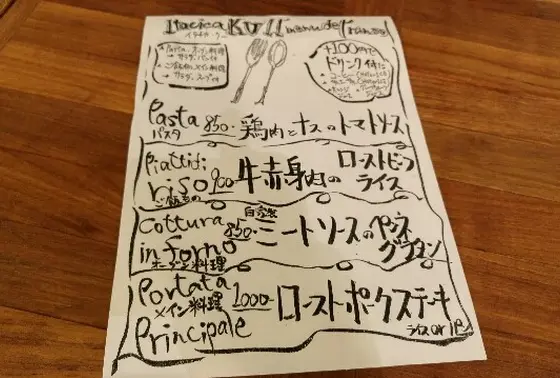 Itacica Ku-!! menu de Pranzo
イタチカ・クー
Pasta, オーブン料理
→ サラダ、パン付
ごはんもの、メイン料理
→ サラダ、スープ付
+100円で
ドリンク付に
Pasta 850- 鶏肉とナスのトマトソース
パスタ
Piatti di riso 900 牛赤身肉のローストビーフライス
ごはんもの
Cottura in forno 850- 自家製ミートソースのペンネグラタン
オーブン料理
Portata 1000- ローストポークステーキ
メイン料理
Principale ライス or パン